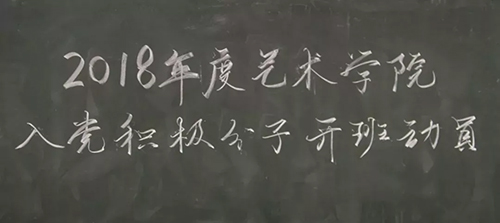 2018年度艺术学院
入党积极分子开班动员